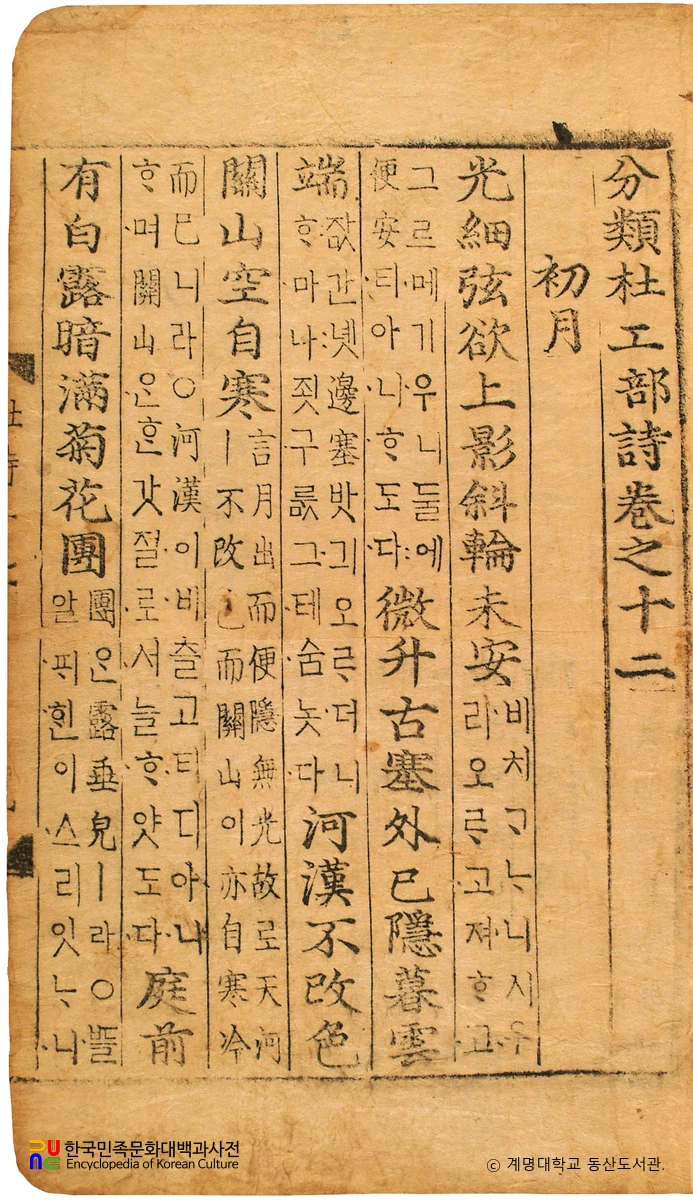 分類杜工部詩卷之十二
初月
光細弦欲上影斜輪未安비치ᄀᆞᄂᆞ니시우라오ᄅᆞ고져ᄒᆞ고
그르메기우니둘에便安티아니ᄒᆞ도다微升古塞外已隱暮雲
端잢간녯邊塞밧긔오ᄅᆞ더니ᄒᆞ마나죗구룺그테숨놋다河漢不改色
關山空自寒言月出而便隱無光故로天河ㅣ不改色而關山이亦自寒冷
而已니라○河漢이비츨고티디아니ᄒᆞ며關山ᄋᆞᆫᄒᆞᆫ갓절로서늘ᄒᆞ얏도다庭前
有白露暗滿菊花團團ᄋᆞᆫ露垂皃ㅣ라○ᄠᅳᆯ알ᄑᆡᄒᆡᆫ이스리잇ᄂᆞ니
한국민족문화대백과사전
Encyclopedia of Korean Culture
© 계명대학교 동산도서관.